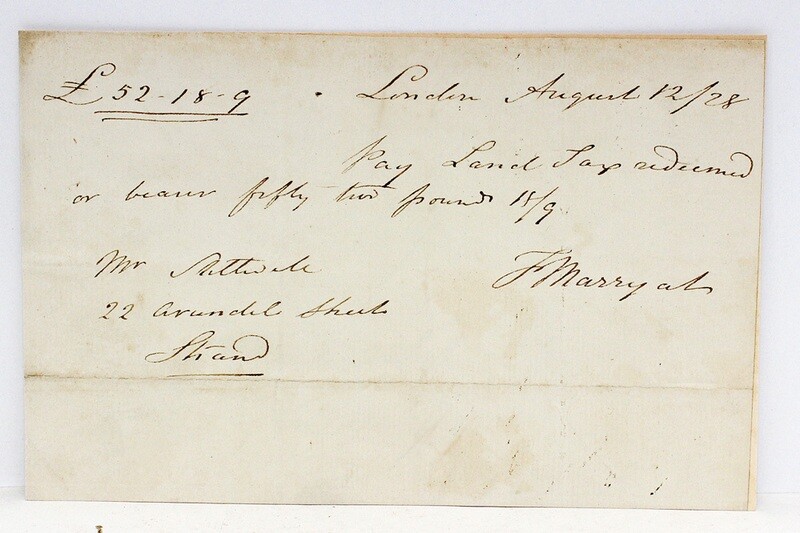 £52-18-9 London August 12/28
Pay Land Tax redeemed
or bearer fifty two pounds 18/9
Mr Stillwell
FMarryat
22 Arundel Street
Strand